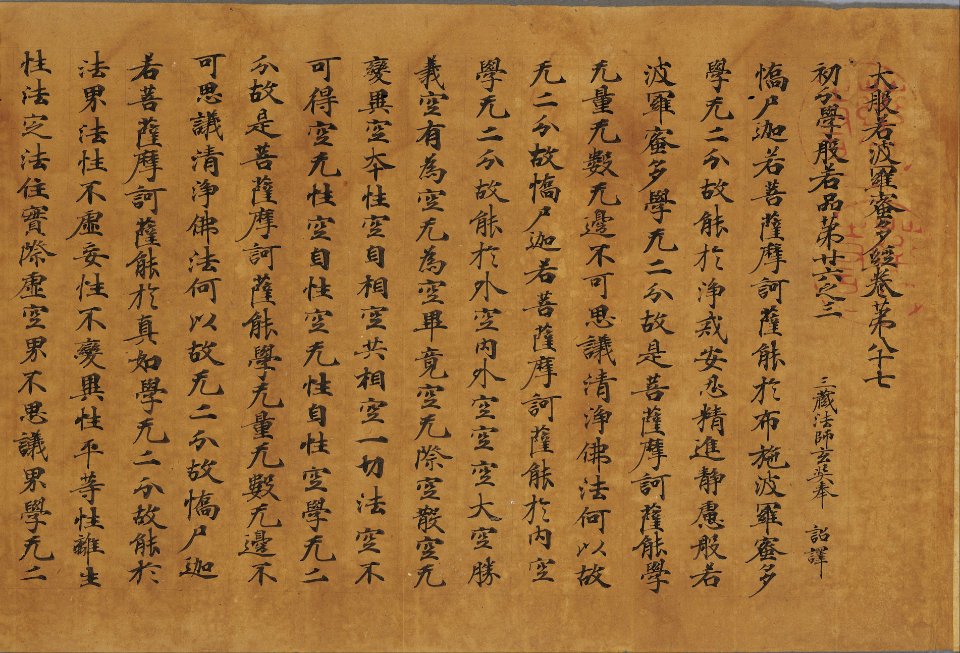 大般若波羅蜜多經卷第八十七
初分學般若品第廿六之三　三藏法師玄奘奉　詔譯
憍尸迦若菩薩摩訶薩能於布施波羅蜜多
學无二分故能於淨戒安忍精進靜慮般若
波羅蜜多學无二分故是菩薩摩訶薩能學
无量无數无邊不可思議清淨佛法何以故
无二分故憍尸迦若菩薩摩訶薩能於內空
學无二分故能於外空內外空空空大空勝
義空有為空无為空畢竟空无際空散空无
變異空本性空自相空共相空一切法空不
可得空无性空自性空无性自性空學无二
分故是菩薩摩訶薩能學无量无數无邊不
可思議清淨佛法何以故无二分故憍尸迦
若菩薩摩訶薩能於真如學无二分故能於
法界法性不虛妄性不變異性平等性離生
性法定法住實際虛空界不思議界學无二